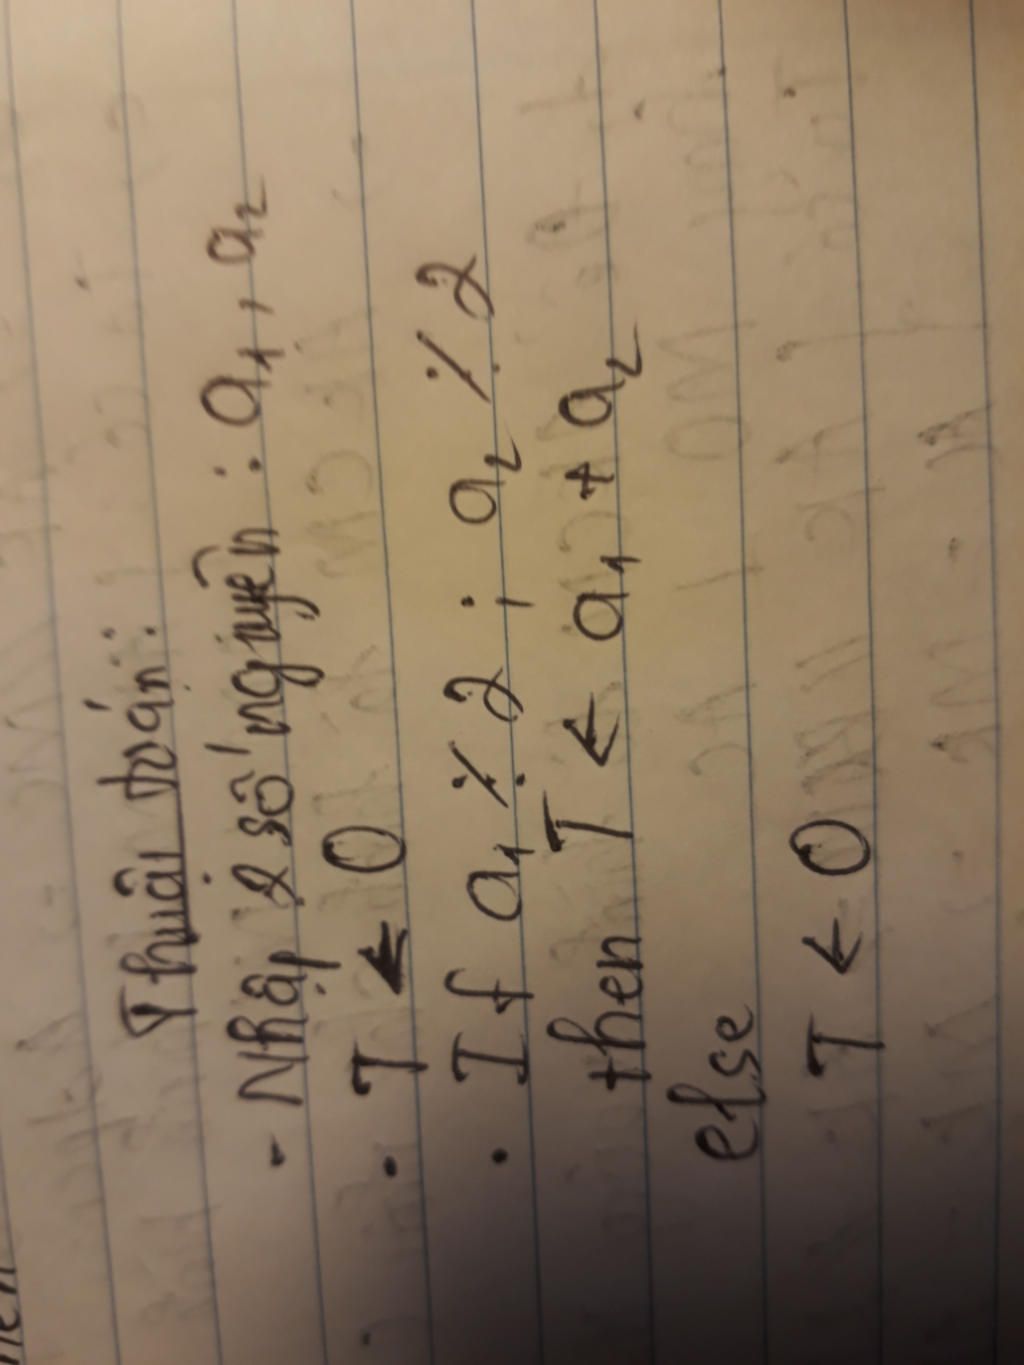 Thuật toán:
- Nhập 2 số nguyên: a1, a2
. T ← 0
. If a1 % 2 ; a2 % 2
then T ← a1 + a2
else
T ← 0